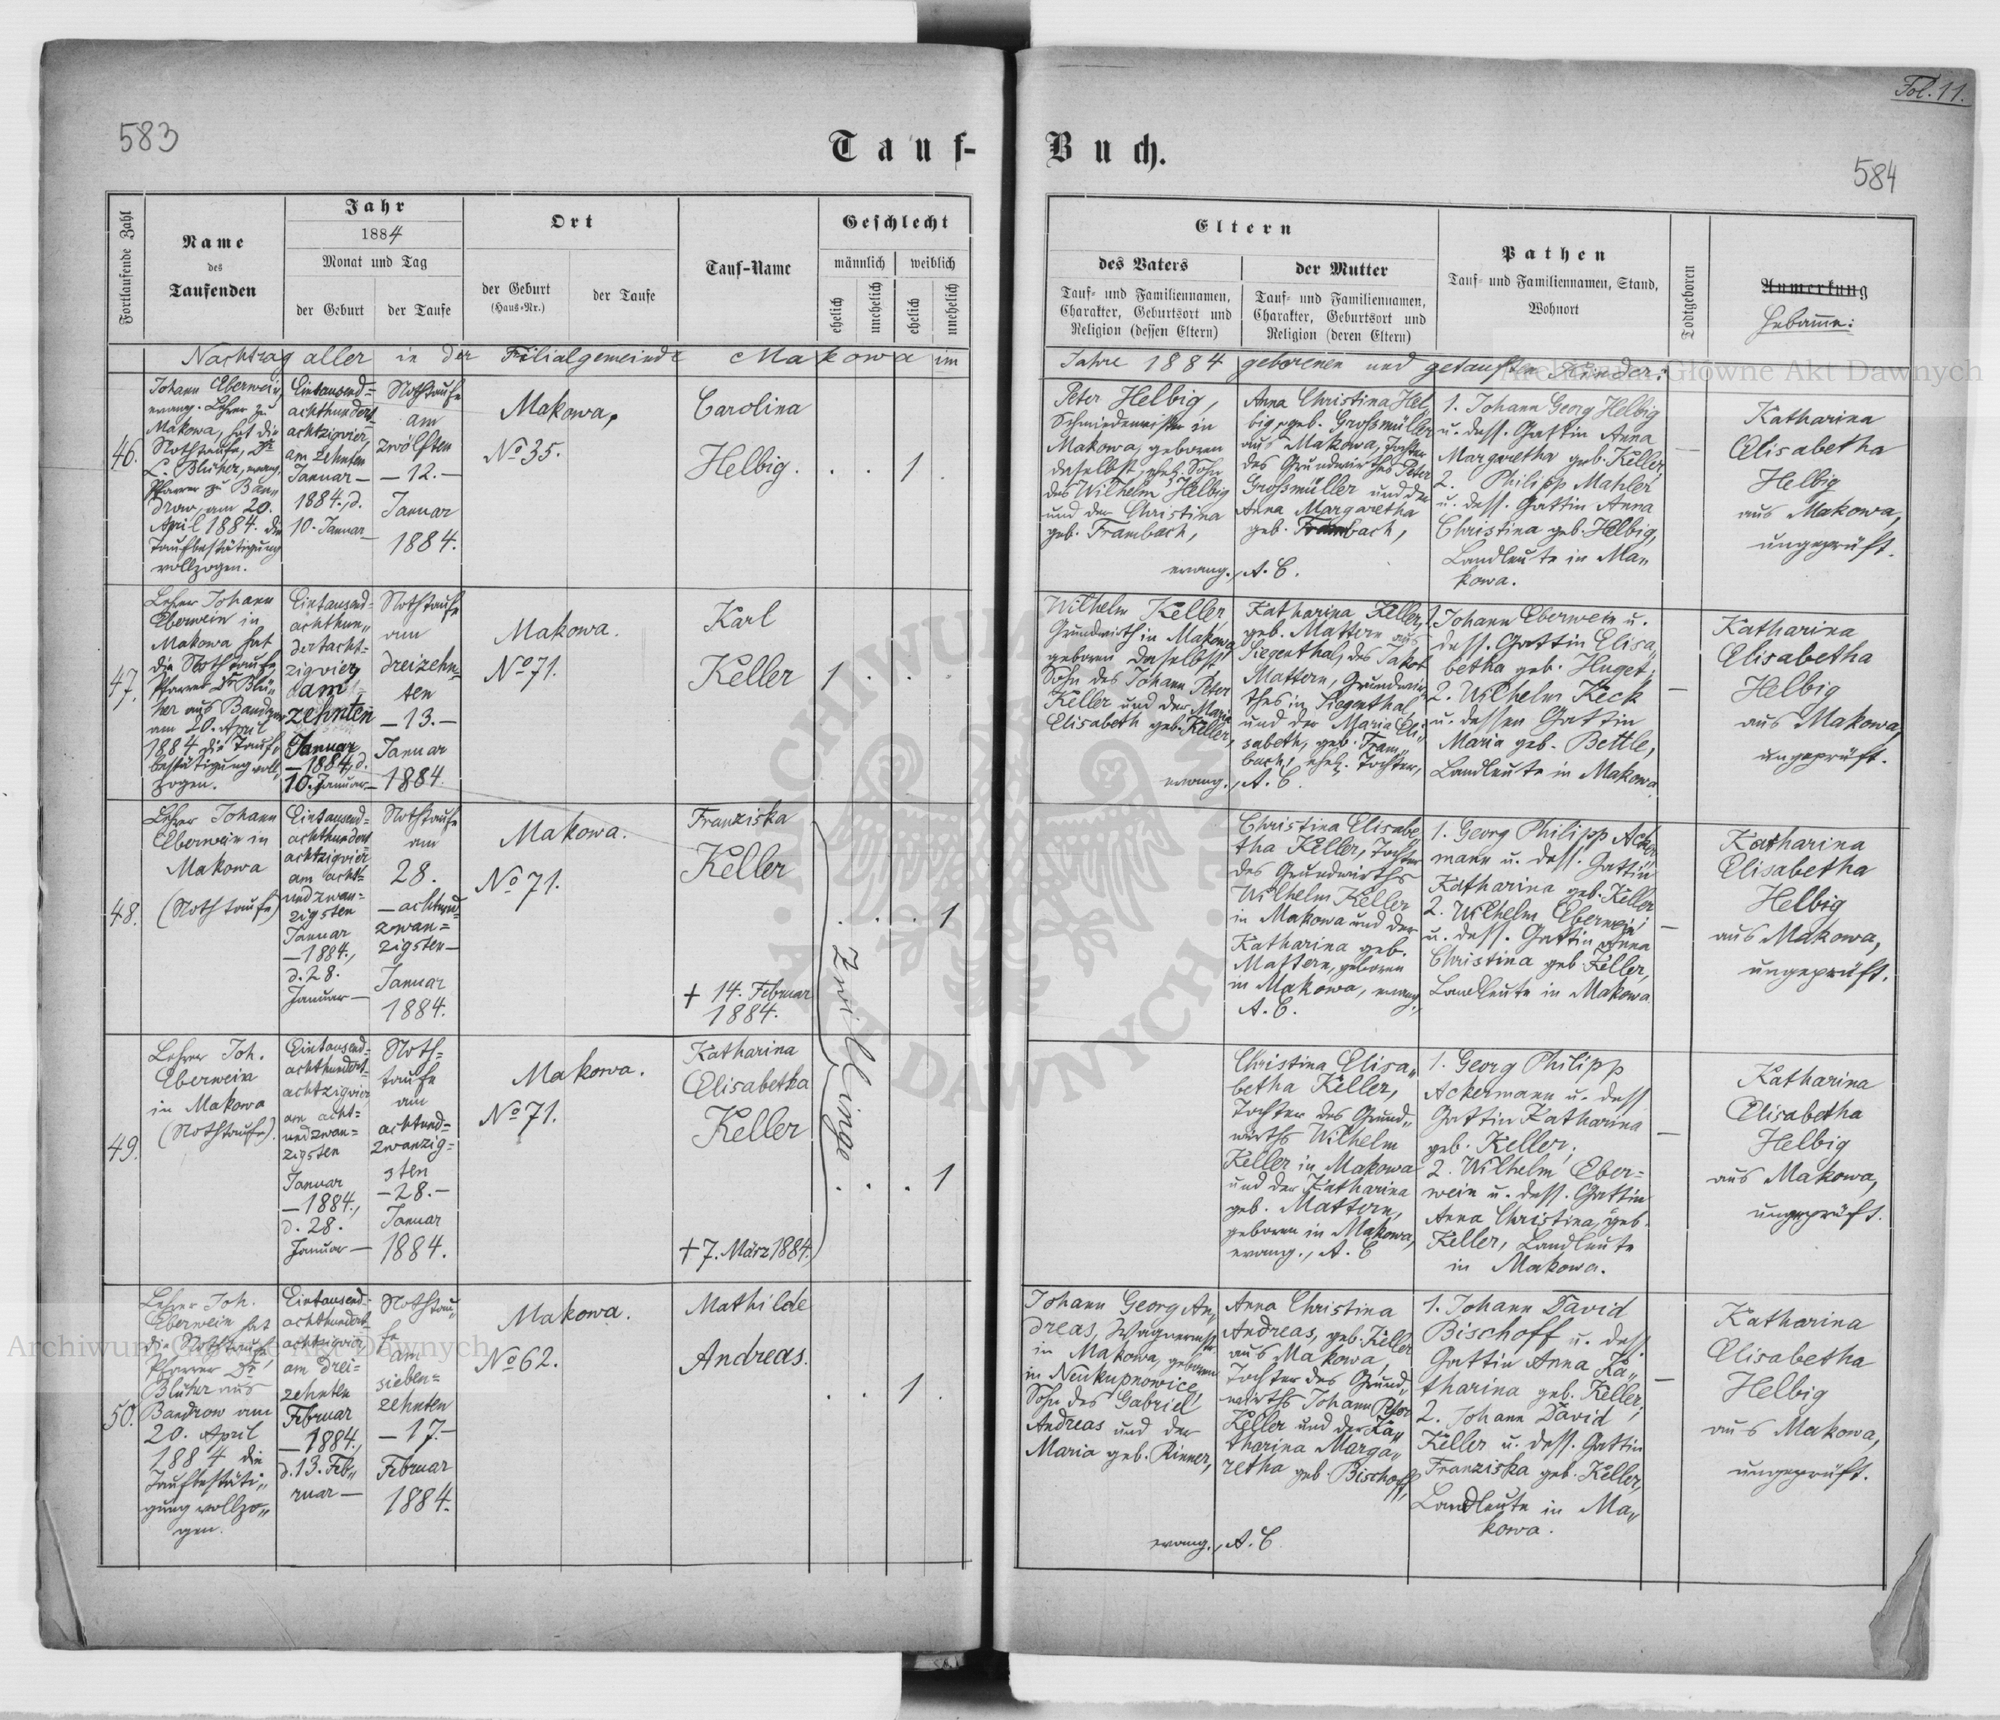 Fol. 11.
583
Tauf-Buch.
584
Fortlaufende Zahl
Name
des
Taufenden
Jahr
1884
Monat und Tag
der Geburt
der Taufe
Ort
der Geburt
(Haus-Nr.)
der Taufe
Tauf-Name
Geschlecht
männlich
weiblich
ehelich
unehelich
ehelich
unehelich
Eltern
des Vaters
Tauf- und Familiennamen,
Charakter, Geburtsort und
Religion (dessen Eltern)
der Mutter
Tauf- und Familiennamen,
Charakter, Geburtsort und
Religion (deren Eltern)
Pathen
Tauf- und Familiennamen, Stand,
Wohnort
Todtgeboren
Anmerkung
Hebamme:
Nachtrag aller in der Filialgemeinde Makowa im
Jahre 1884 geborenen und getauften Kinder:
46.
Johann Eberwein,
evang. Lehrer zu
Makowa, hat die
Nothtaufe, Dr.
L. Blüher, evang.
Pfarrer zu Ban„
drow, am 20.
April 1884. die
Taufbestätigung
vollzogen.
Eintausend=
achthundert
achtzigvier,
am zehnten
Januar —
1884., d.
10. Januar —
Nothtaufe
am
zwölften
— 12. —
Januar
1884.
Makowa,
No 35.
Carolina
Helbig.
. . 1 .
Peter Helbig,
Schmiedemeister in
Makowa, geboren
daselbst, ehel. Sohn
des Wilhelm Helbig
und der Christina
geb. Frambach,
evang., A. C.
Anna Christina Hel„
big, geb. Großmüller
aus Makowa, Tochter
des Grundwirths Peter
Großmüller und der
Anna Margaretha
geb. Frambach,
1. Johann Georg Helbig
u. dess. Gattin Anna
Margaretha geb. Keller,
2. Philipp Mahler
u. dess. Gattin Anna
Christina geb. Helbig,
Landleute in Ma„
kowa.
—
Katharina
Elisabetha
Helbig
aus Makowa,
ungeprüft.
47.
Lehrer Johann
Eberwein in
Makowa hat
die Nothtaufe,
Pfarrer Dr. Blü„
her aus Bandrow
am 20. April
1884 die Tauf„
bestätigung voll„
zogen.
Eintausend=
achthun„
dertacht=
zigvier,
am
zehnten
Januar
— 1884., d.
10. Januar —
Nothtaufe
am
dreizehn=
ten
— 13. —
Januar
1884.
Makowa.
No 71.
Karl
Keller
1 . . .
Wilhelm Keller,
Grundwirth in Makowa,
geboren daselbst,
Sohn des Johann Peter
Keller und der Maria
Elisabeth geb. Keller,
evang., A. C.
Katharina Keller,
geb. Mattern aus
Siegenthal, des Jakob
Mattern, Grundwir„
thes in Siegenthal
und der Maria Eli„
sabeth, geb. Fram„
bach, ehel. Tochter,
1. Johann Eberwein u.
dess. Gattin Elisa„
betha geb. Huget;
2. Wilhelm Keck
u. dessen Gattin
Maria geb. Bettle,
Landleute in Makowa.
—
Katharina
Elisabetha
Helbig
aus Makowa,
ungeprüft.
48.
Lehrer Johann
Eberwein in
Makowa
(Nothtaufe)
Eintausend=
achthundert
achtzigvier
am acht=
undzwan=
zigsten
Januar
— 1884.,
d. 28.
Januar —
Nothtaufe
am
28.
— achtund=
zwan=
zigsten —
Januar
1884.
Makowa.
No 71.
Franziska
Keller
+ 14. Februar
1884.
Zwillinge
. . . 1
Christina Elisabe„
tha Keller, Tochter
des Grundwirths
Wilhelm Keller
in Makowa und der
Katharina geb.
Mattern, geboren
in Makowa, evang.,
A. C.
1. Georg Philipp Acker
mann u. dess. Gattin
Katharina geb. Keller
2. Wilhelm Eberwein
u. dess. Gattin Anna
Christina geb. Keller,
Landleute in Makowa
—
Katharina
Elisabetha
Helbig
aus Makowa,
ungeprüft.
49.
Lehrer Joh.
Eberwein
in Makowa
(Nothtaufe).
Eintausend=
achthundert=
achtzigvier
am acht=
undzwan=
zigsten
Januar
— 1884.,
d. 28.
Januar —
Noth=
taufe
am
achtund=
zwanzig=
sten
— 28. —
Januar
1884.
Makowa.
No 71.
Katharina
Elisabetha
Keller
+ 7. März 1884.
. . . 1
Christina Elisa„
betha Keller,
Tochter des Grund„
wirths Wilhelm
Keller in Makowa
und der Katharina
geb. Mattern,
geboren in Makowa,
evang., A. C
1. Georg Philipp
Ackermann u. dess
Gattin Katharina
geb. Keller;
2. Wilhelm Eber=
wein u. dess. Gattin
Anna Christina, geb.
Keller, Landleute
in Makowa.
—
Katharina
Elisabetha
Helbig
aus Makowa,
ungeprüft.
50.
Lehrer Joh.
Eberwein hat
die Nothtaufe,
Pfarrer Dr.
Blüher aus
Bandrow am
20. April
1884 die
Taufbestäti„
gung vollzo„
gen.
Eintausend=
achthundert
achtzigvier
am drei=
zehnten
Februar
— 1884.,
d. 13. Feb„
ruar —
Nothtau„
fe
am
sieben=
zehnten
— 17. —
Februar
1884.
Makowa.
No 62.
Mathilde
Andreas.
. . 1 .
Johann Georg An„
dreas, Wagnermstr
in Makowa, geboren
in Neukupnowice,
Sohn des Gabriel
Andreas und der
Maria geb. Rinner,
evang., A. C.
Anna Christina
Andreas, geb. Keller
aus Makowa,
Tochter des Grund„
wirths Johann Peter
Keller und der Ka„
tharina Marga„
retha geb. Bischoff,
1. Johann David
Bischoff u. dess.
Gattin Anna Ka„
tharina geb. Keller;
2. Johann David
Keller u. dess. Gattin
Franziska geb. Keller,
Landleute in Ma„
kowa.
—
Katharina
Elisabetha
Helbig
aus Makowa,
ungeprüft.
Archiwum Główne Akt Dawnych
Archiwum Główne Akt Dawnych